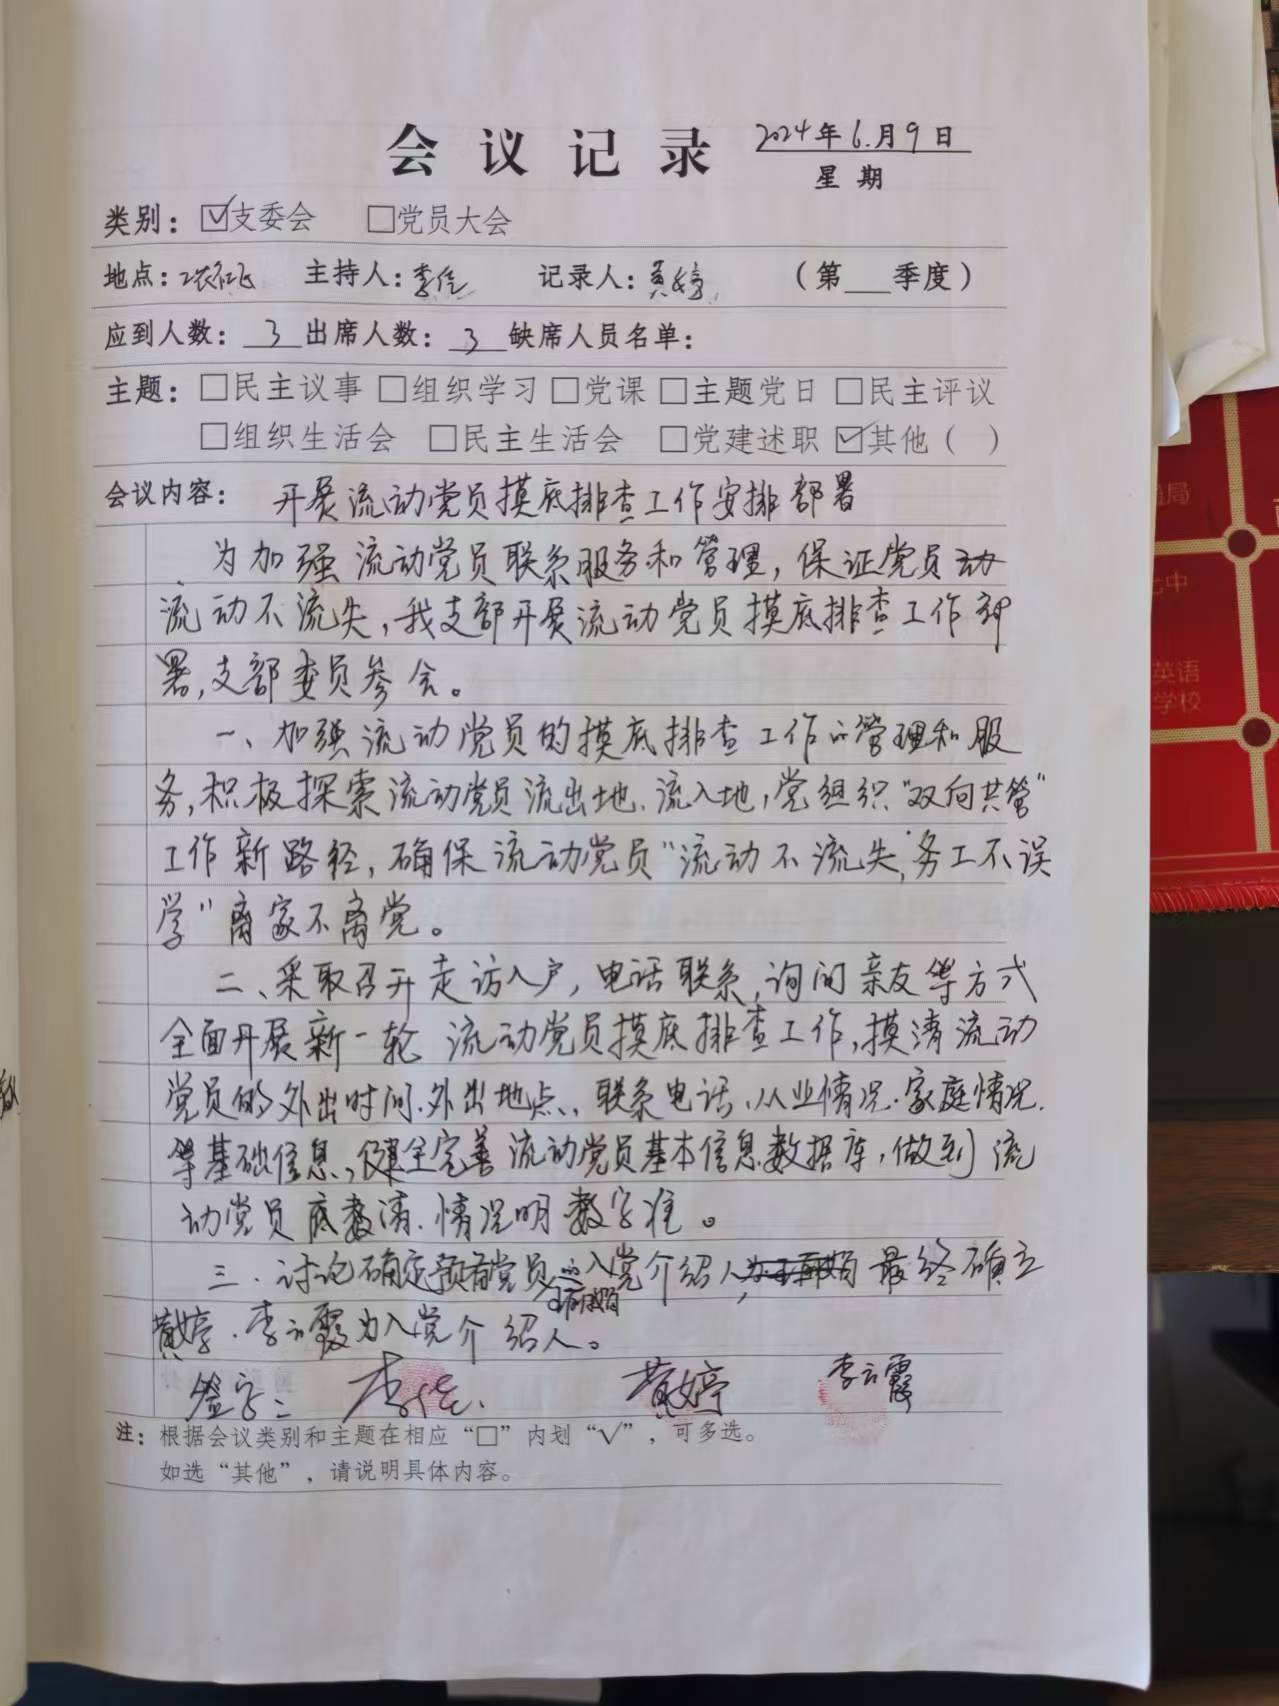 会议记录 2024年6月9日
星期
类别：☑支委会 □党员大会
地点： 主持人：李佳 记录人：黄婷 （第 季度）
应到人数：3 出席人数：3 缺席人员名单：
主题：□民主议事 □组织学习 □党课 □主题党日 □民主评议
□组织生活会 □民主生活会 □党建述职 ☑其他（ ）
会议内容： 开展流动党员摸底排查工作安排部署
为加强流动党员联系服务和管理，保证党员
流动不流失，我支部开展流动党员摸底排查工作部
署，支部委员参会。
一、加强流动党员的摸底排查工作的管理和服
务，积极探索流动党员流出地、流入地，党组织“双向共管”
工作新路径，确保流动党员“流动不流失，务工不误
学”离家不离党。
二、采取召开走访入户，电话联系，询问亲友等方式
全面开展新一轮流动党员摸底排查工作，摸清流动
党员的外出时间、外出地点、联系电话、从业情况、家庭情况
等基础信息，健全完善流动党员基本信息数据库，做到流
动党员底数清、情况明、数字准。
三、讨论确定预备党员的入党介绍人，最终确立
黄婷、李云霞为入党介绍人。
签字： 李佳 黄婷 李云霞
注：根据会议类别和主题在相应“□”内划“√”，可多选。
如选“其他”，请说明具体内容。
局
七中
英语
学校